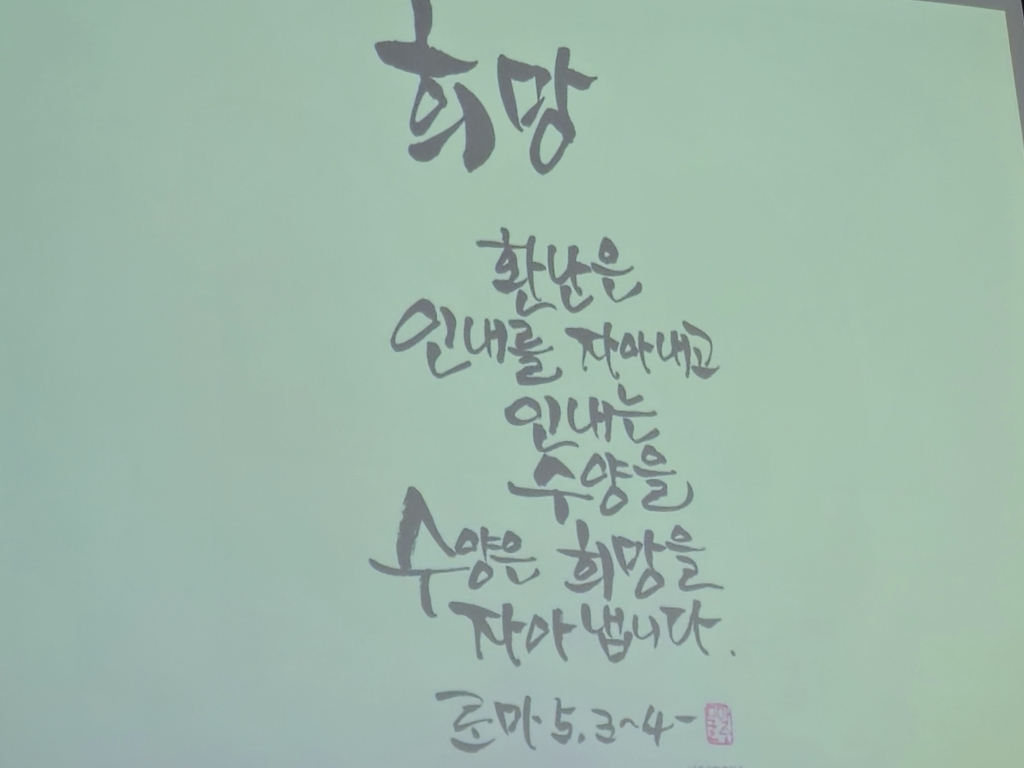 희망
환난은
인내를 자아내고
인내는
수양을
수양은 희망을
자아냅니다.
로마 5,3~4-